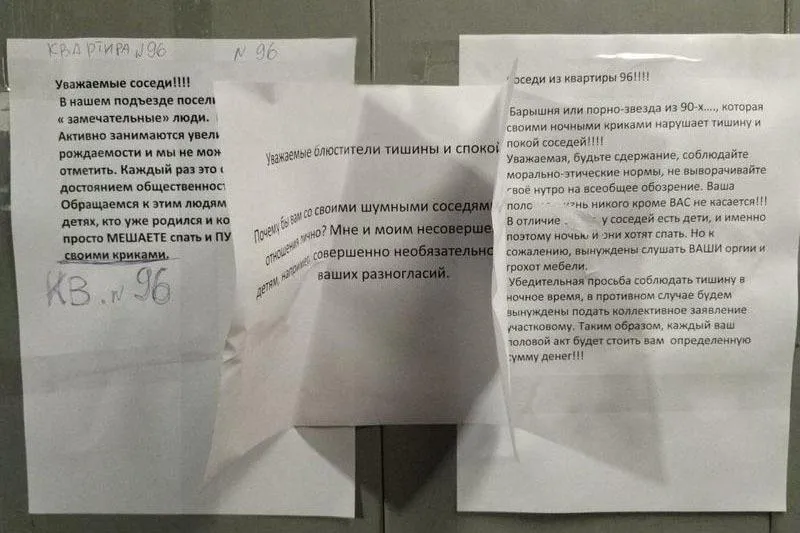 КВАРТИРА №96
№ 96
Уважаемые соседи!!!!
В нашем подъезде
« замечательные» люди.
Активно занимаются
рождаемости и мы не
отметить. Каждый раз это
достоянием
Обращаемся к этим людям
детях, кто уже родился и
просто МЕШАЕТЕ спать и
своими криками.
КВ. № 96
Уважаемые блюстители тишины и
Почему бы вам со своими шумными соседями
отношения лично? Мне и моим
детям, например, совершенно
ваших разногласий.
из квартиры 96!!!!
Барышня или порно-звезда из 90-х...., которая
своими ночными криками нарушает тишину и
покой соседей!!!!
Уважаемая, будьте сдержание, соблюдайте
морально-этические нормы, не выворачивайте
своё нутро на всеобщее обозрение. Ваша
никого кроме ВАС не касается!!!
В отличие у соседей есть дети, и именно
поэтому ночью и они хотят спать. Но к
сожалению, вынуждены слушать ВАШИ оргии и
грохот мебели.
Убедительная просьба соблюдать тишину в
ночное время, в противном случае будем
вынуждены подать коллективное заявление
участковому. Таким образом, каждый ваш
половой акт будет стоить вам определенную
сумму денег!!!